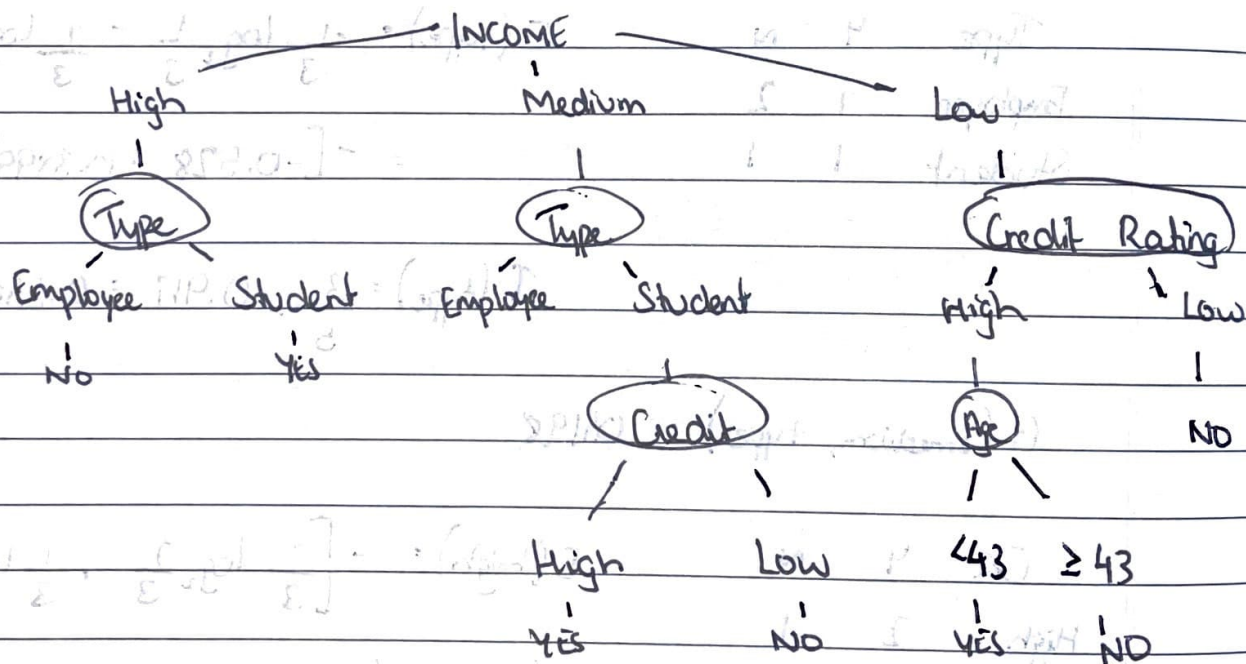 INCOME
High Medium Low
Type Type Credit Rating
Employee Student Employee Student High Low
NO YES
Credit Age NO
High Low <43 ≥43
YES NO YES NO